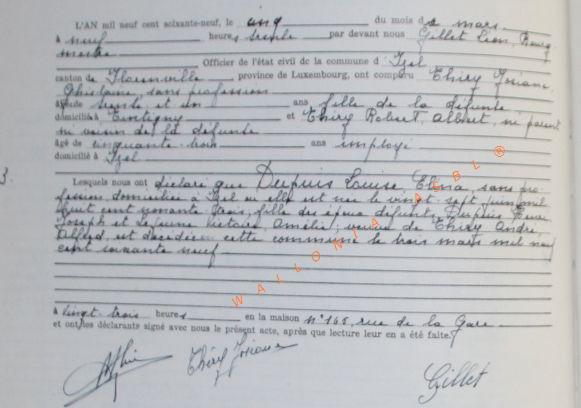 L'AN mil neuf cent soixante-neuf, le cinq du mois de mars
à neuf heures trente par devant nous Gillet Léon, Bourg
mestre
Officier de l'état civil de la commune d' Izel
canton de Florenville province de Luxembourg, ont comparu Thiry Josiane
Ghislaine, sans profession
âgée de trente et un ans fille de la défunte
domiciliée à Tintigny et Thiry Robert, Albert, ni parent
ni voisin de la défunte
âgé de cinquante trois ans employé
domicilié à Izel
3.
Lesquels nous ont déclaré que Dupuis Louise, Elina, sans pro-
fession, domiciliée à Izel où elle est née le vingt sept juin mil
huit cent nonante trois, fille des époux défunts Dupuis
Joseph et Amélie, veuve de Thiry André
Alfred, est décédée en cette commune le trois mars mil neuf
cent soixante neuf
à vingt trois heures en la maison n° 165, rue de la Gare
et ont les déclarants signé avec nous le présent acte, après que lecture leur en a été faite.
Thiry Josiane
Gillet
WALLONIA ASBL ®